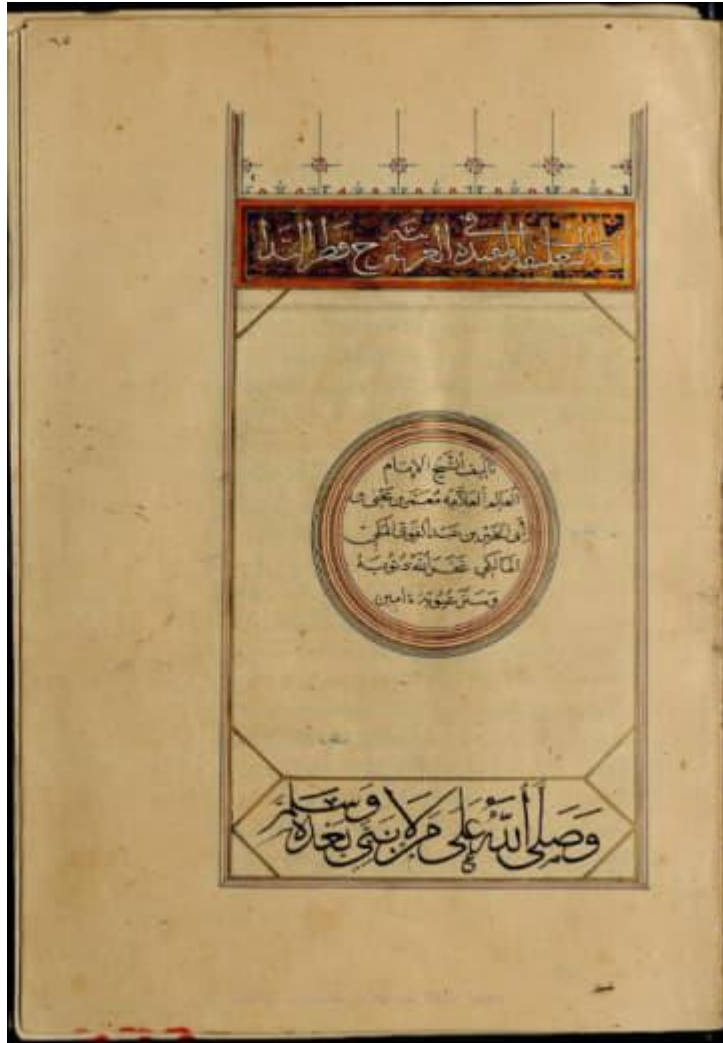 التعليقة المفيدة في العربية شرح قطر الندا
تأليف الشيخ الإمام
العالم العلامة معمر بن يحيى بن
أبي الخير بن عبد القوي المكي
المالكي غفر الله ذنوبه
وستر عيوبه امين
وصلى الله على من لا نبي بعده وسلم